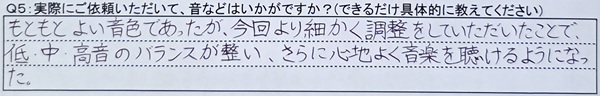 Q5：実際にご依頼いただいて、音などはいかがですか？(できるだけ具体的に教えてください)
もともと よい音色であったが、今回より細かく調整をしていただいたことで、
低・中・高音のバランスが整い、さらに心地よく音楽を聴けるようになっ
た。